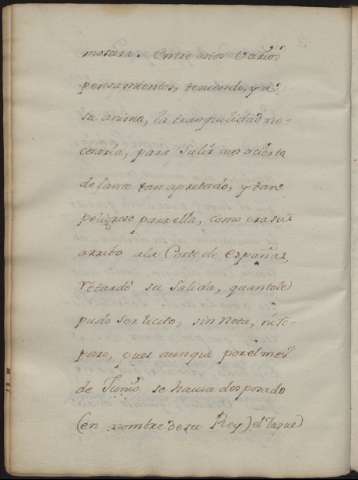 mosura. Entre estos varios
pensamientos, teniendo, ya
su animo, la tranquilidad ne-
cesaria, para salir mas acierta
de lance tan apretado, y tan
peligroso para ella, como era su
arribo ala Corte de España,
retardó su salida, quantole
pudo ser licito, sin nota, ni re-
paro, pues aunque por el mes
de Junio se havia desposado
(en nombre de su Rey) el Duque